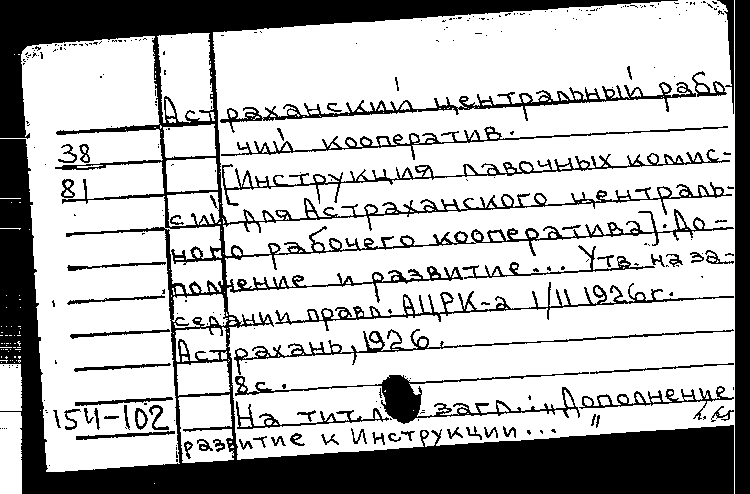 Астраханский центральный рабо-
38 чий кооператив.
81 [Инструкция лавочных комис-
сий для Астраханского централь-
ного рабочего кооператива]. До-
полнение и развитие... Утв. на за-
седании правл. АЦРК-а 1/II 1926г.
Астрахань, 1926.
8с.
154-102 На тит. л загл.: „Дополнение
развитие к Инструкции..."